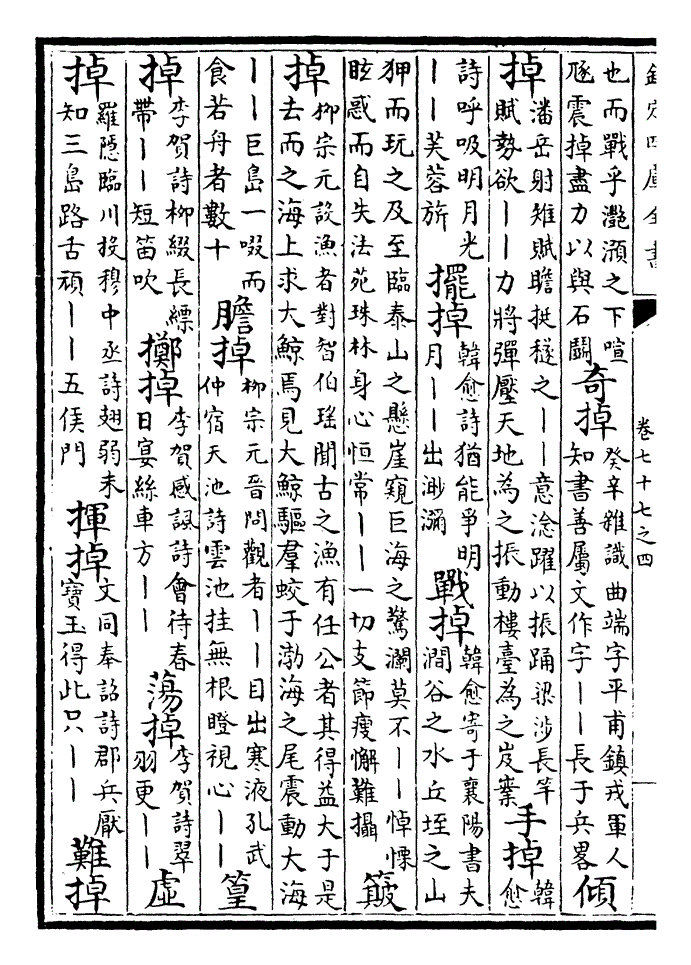 欽定四庫全書
卷七十七之四
也而戰乎灩澦之下喧
豗震掉盡力以與石鬬
奇掉
癸辛雜識曲端字平甫鎮戎軍人
知書善屬文作字丨丨長于兵畧
傾
掉
潘岳射雉賦瞻挺穟之丨丨意淰躍以振踊梁涉長竿
賦勢欲丨丨力將彈壓天地為之振動樓臺為之岌嶪
手掉
韓
愈
詩呼吸明月光
丨丨芙蓉旂
擺掉
韓愈詩猶能爭明
月丨丨出渺瀰
戰掉
韓愈寄于襄陽書夫
澗谷之水丘垤之山
狎而玩之及至臨泰山之懸崖窺巨海之驚瀾莫不丨丨悼慄
眩惑而自失法苑珠林身心恒常丨丨一切支節瘦懈難攝
簸
掉
柳宗元設漁者對智伯瑤聞古之漁有任公者其得益大于是
去而之海上求大鯨焉見大鯨驅羣蛟于渤海之尾震動大海
丨丨巨島一啜而
食若舟者數十
膽掉
柳宗元晉問觀者丨丨目出寒液孔武
仲宿天池詩雲池挂無根瞪視心丨丨
篁
掉
李賀詩柳綴長縹
帶丨丨短笛吹
擲掉
李賀感諷詩會待春
日宴絲車方丨丨
蕩掉
李賀詩翠
羽更丨丨
虛
掉
羅隱臨川投穆中丞詩翅弱未
知三島路舌頑丨丨五侯門
揮掉
文同奉詔詩郡兵厭
寶玉得此只丨丨
難掉